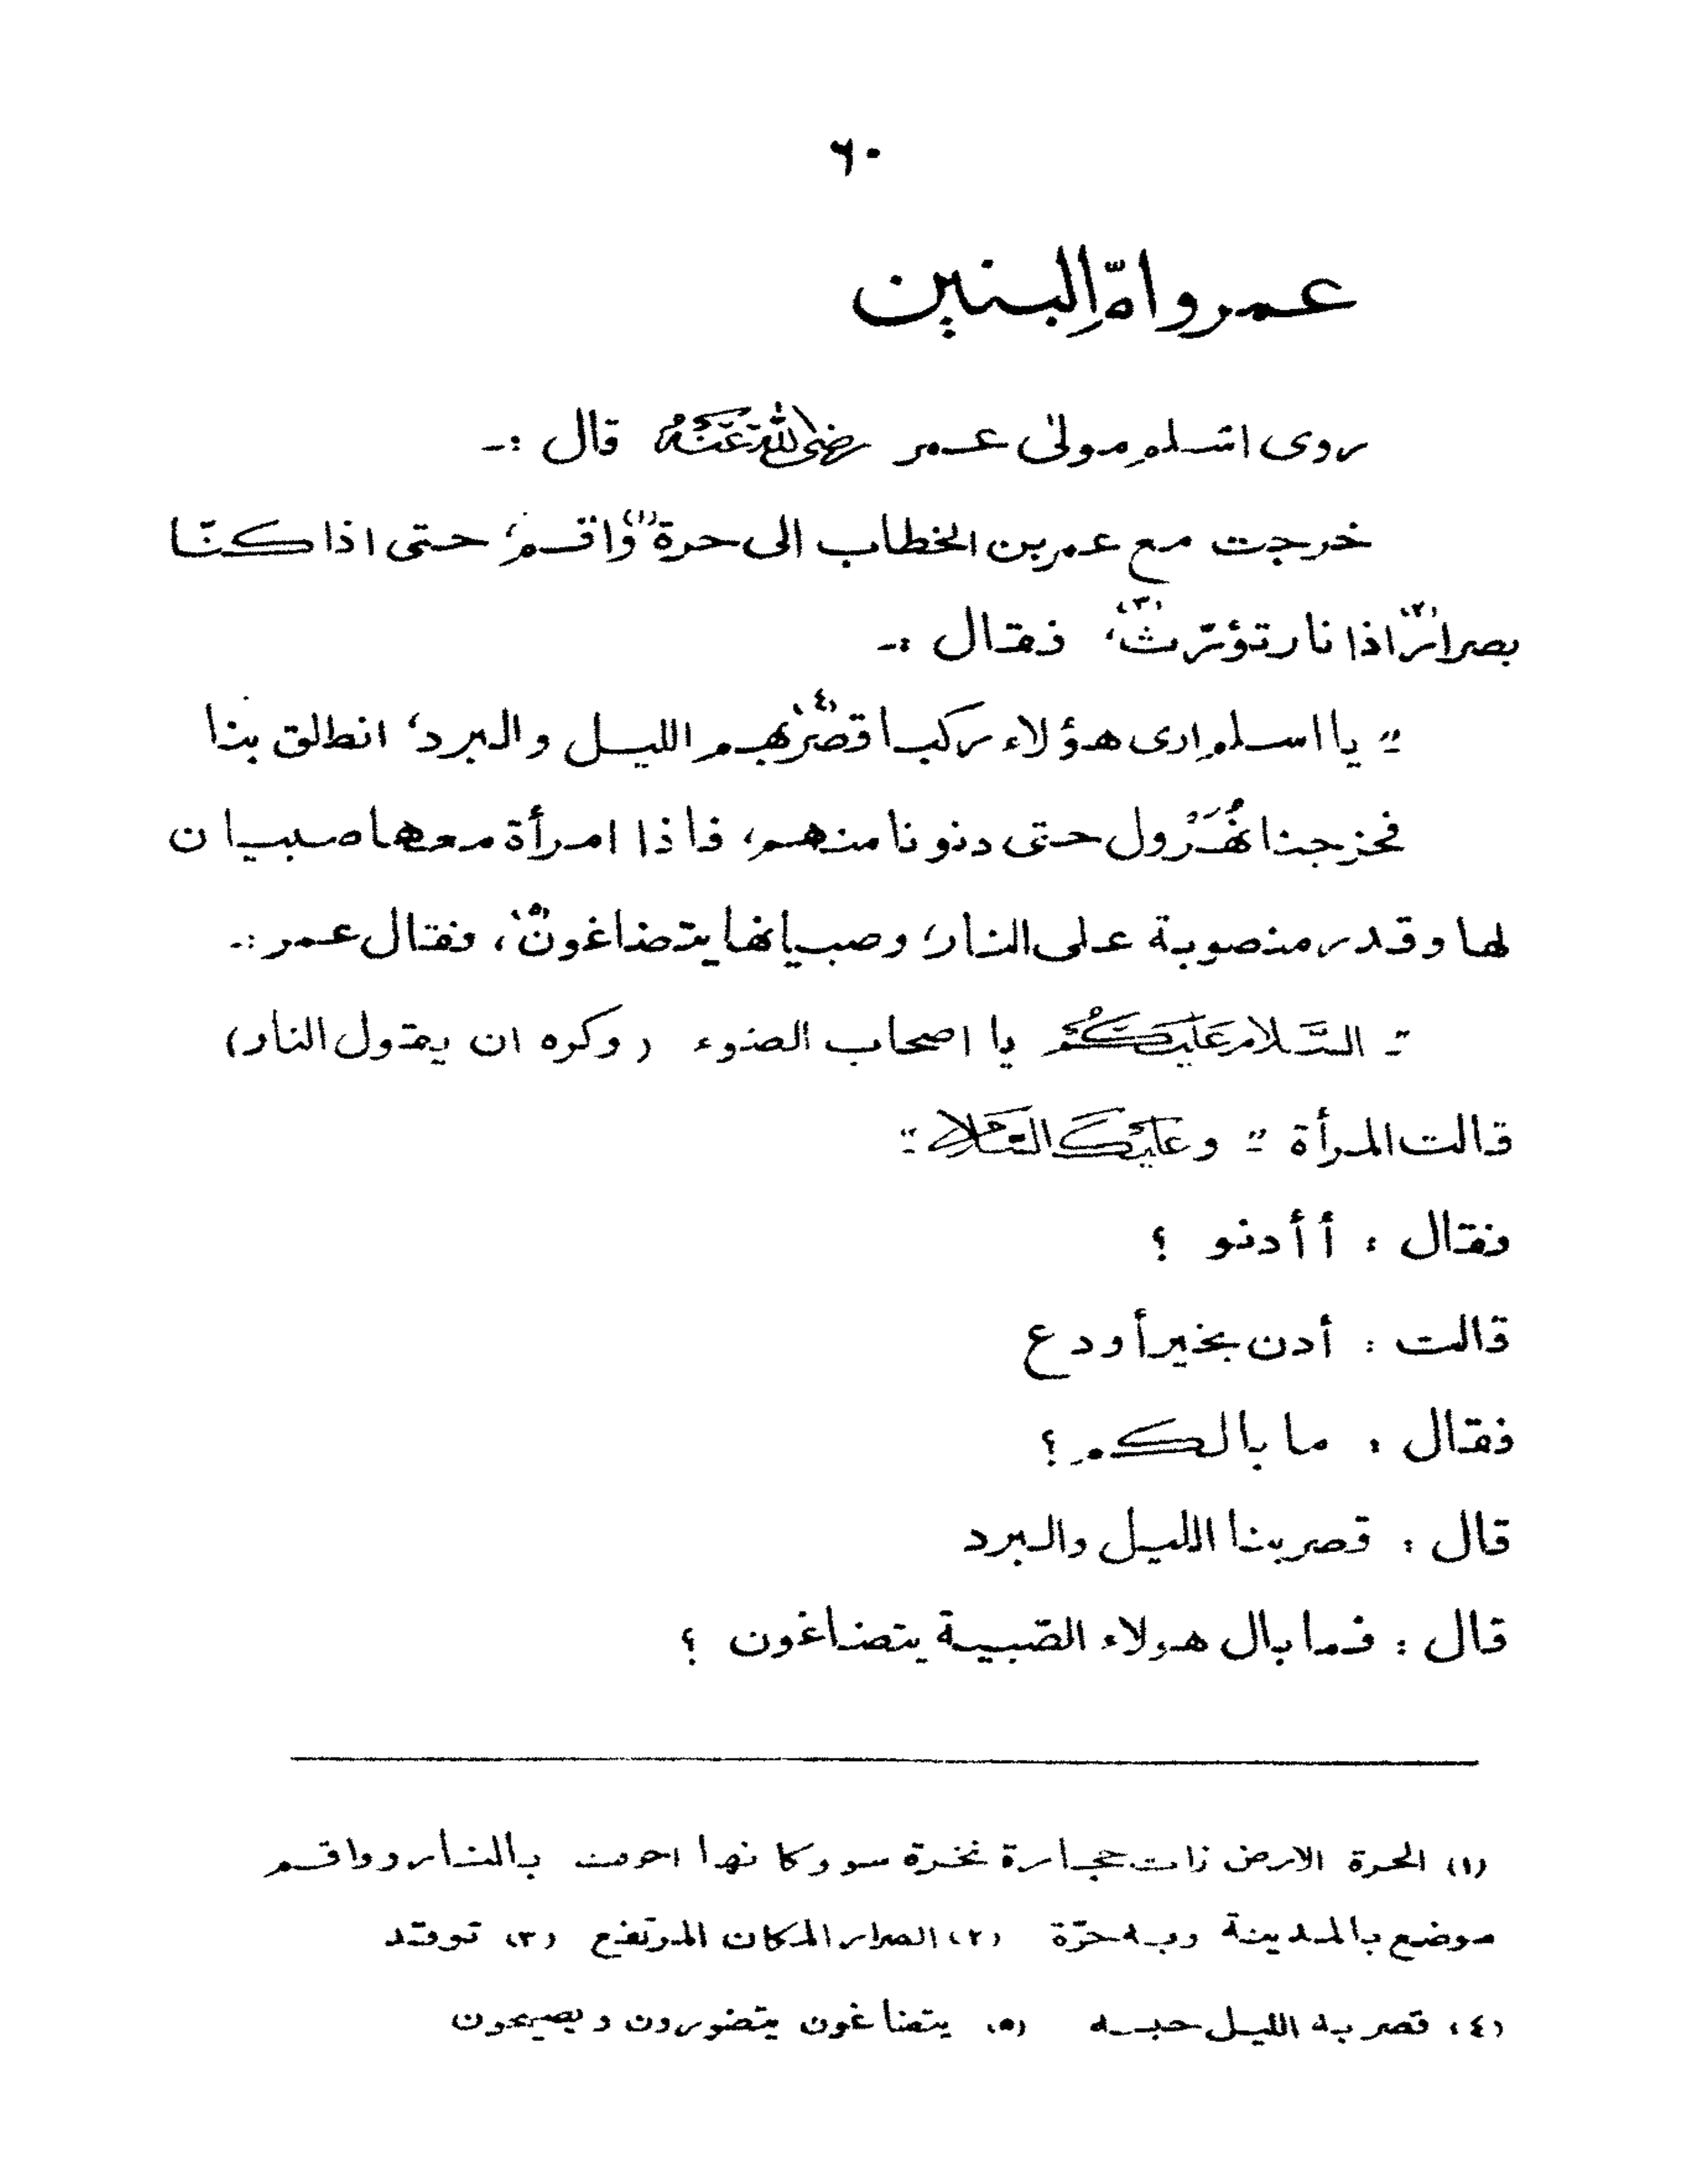 ٦٠
عمر وامّ البنين
روى اسلم مولىٰ عمر رضي الله عنه قال :-
خرجت مع عمر بن الخطاب الى حرة (١) واقم، حتى اذا كنّا
بصرار (٢) اذا نار تؤرّث (٣)، فقال :-
:- يا اسلم ارى هؤلاء ركبا قصر (٤) بهم الليل والبرد، انطلق بنا
فخرجنا نُهَرْول حتى دنونا منهم، فاذا امرأة معها صبيان
لها وقدر منصوبة على النار، وصبيانها يتضاغون (٥)، فقال عمر :-
:- السَّلام عَلَيكُم يا اصحاب الضوء (وكره ان يقول النار)
قالت المرأة :- وعَلَيْكَ السَّلام :-
فقال : أأدنو ؟
قالت : أدن بخير أو دع
فقال : ما بالكم ؟
قال : قصر بنا الليل والبرد
قال : فما بال هولاء الصّبية يتضاغون ؟
(١) الحرة الارض ذات حجارة نخرة سود كانها احرقت بالنار وواقم
موضع بالمدينة وبه حرّة (٢) الصرار المكان المرتفع (٣) توقد
(٤) قصر به الليل حبسه (٥) يتضاغون يتضورون ويصيحون